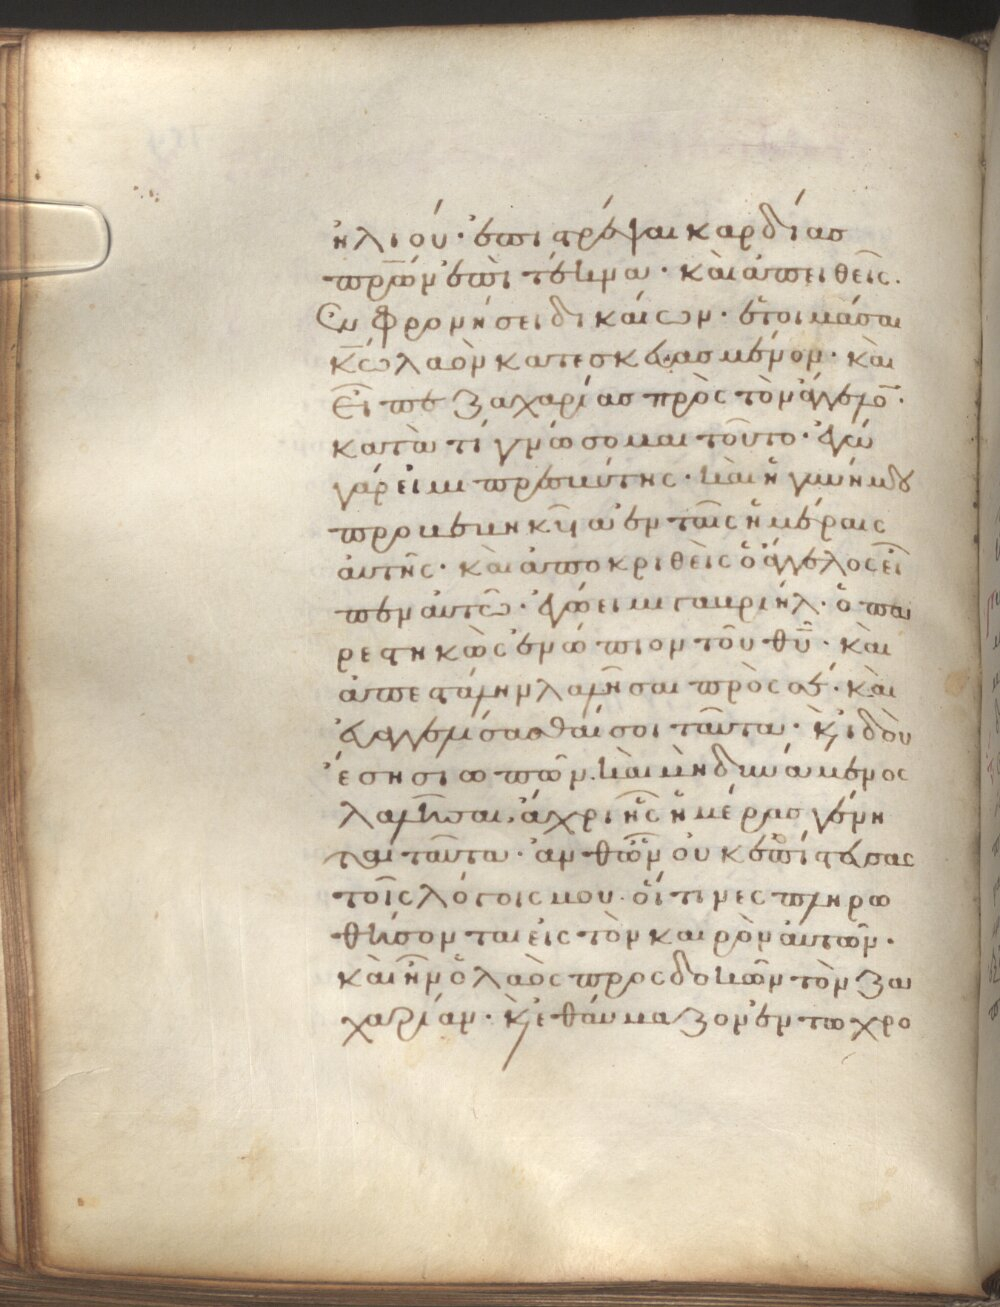 ἠλιού· ἐπιστρέψαι καρδίας
πρ̅ων ἐπὶ τέκνα· καὶ ἀπειθεῖς·
ἐν φρονήσει δικαίων· ἑτοιμάσαι
κ̅ω λαὸν κατεσκευασμένον· καὶ
εἶπε ζαχαρίας πρὸς τὸν ἄγγελον·
κατὰ τί γνώσομαι τοῦτο· ἐγὼ
γάρ εἰμι πρεσβύτης· καὶ ἡ γυνή μου
προβεβηκυῖα ἐν ταῖς ἡμέραις
αὐτῆς· καὶ ἀποκριθεὶς ὁ ἄγγελος εἶ
πεν αὐτῶ· ἐγώ εἰμι γαβριήλ· ὁ πα
ρεστηκὼς ἐνώπιον τοῦ θ̅υ· καὶ
ἀπεστάλην λαλῆσαι πρὸς σέ· καὶ
εὐαγγελίσασθαί σοι ταῦτα· κ̀ ἰδοὺ
ἔση σιωπῶν· καὶ μὴ δυνάμενος
λαλῆσαι, ἄχρι ἧς ἡμέρας γένη
ται ταῦτα· ἀνθ᾽ ὧν οὐκ ἐπίστευσας
τοῖς λόγοις μου· οἵτινες πληρω
θήσονται εἰς τὸν καιρὸν αὐτῶν·
καὶ ἦν ὁ λαὸς προσδοκῶν τὸν ζα
χαρίαν· κ̀ ἐθαύμαζον ἐν τω χρο